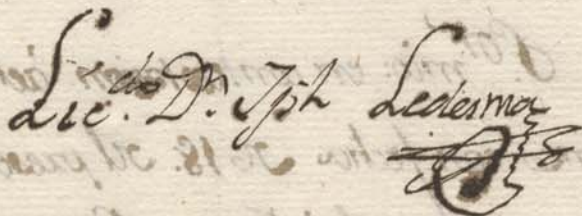 Lic.do Dn. Jph Ledesma